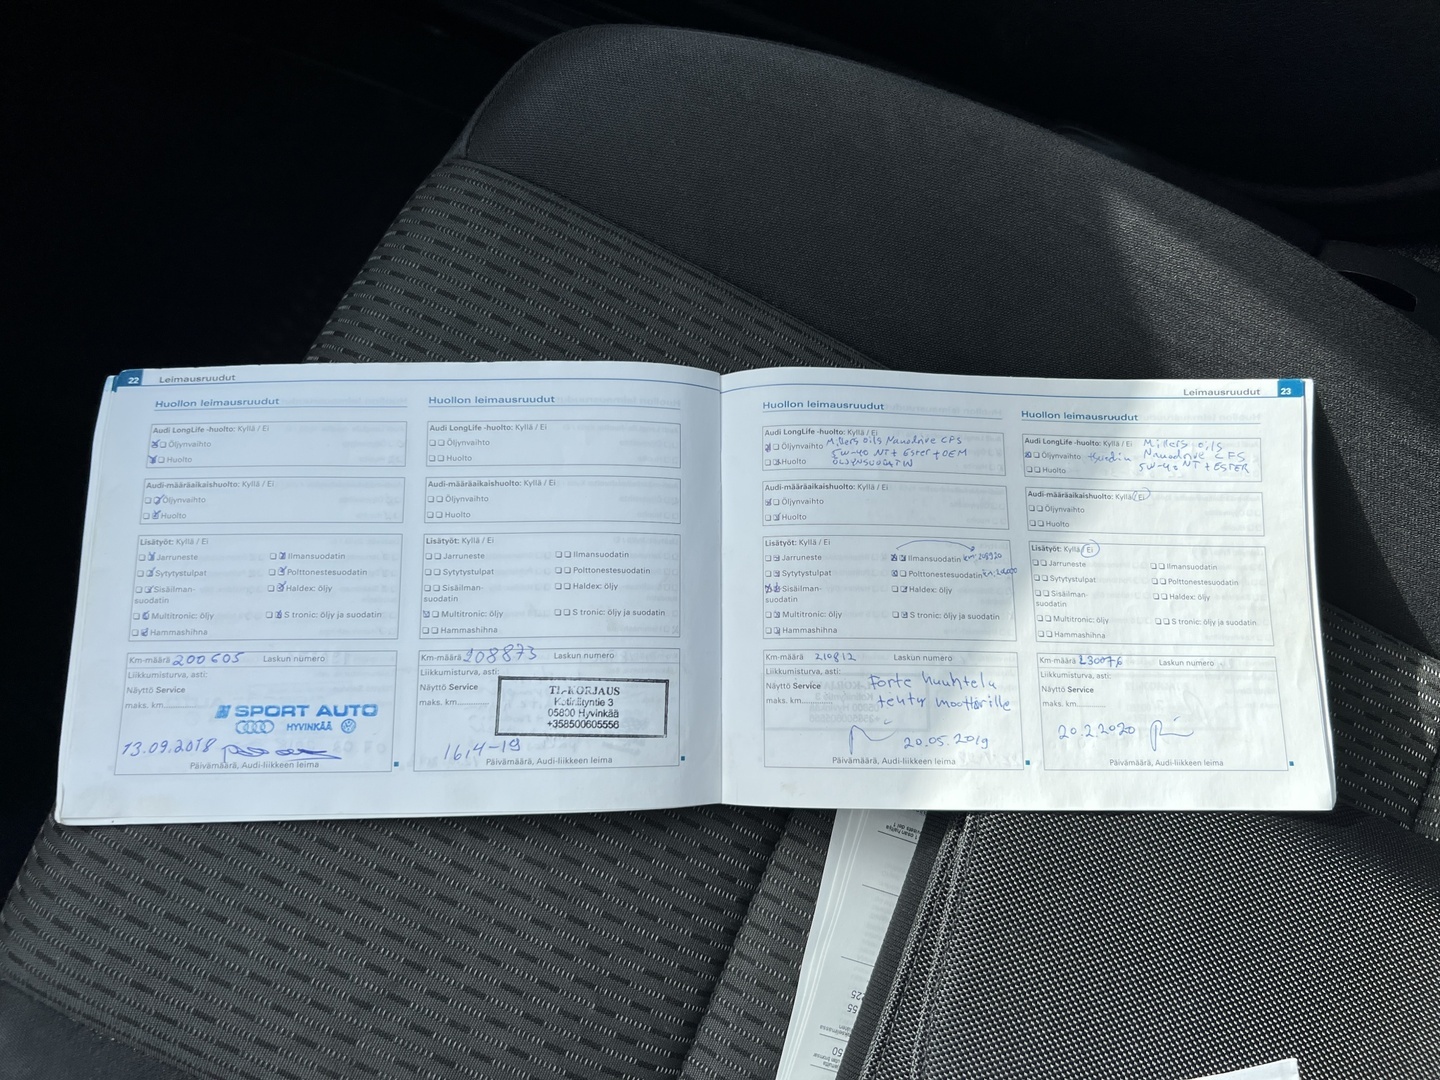 22 Leimausruudut
Huollon leimausruudut
Audi LongLife -huolto: Kyllä / Ei
Öljynvaihto
Huolto
Audi-määräaikaishuolto: Kyllä / Ei
Öljynvaihto
Huolto
Lisätyöt: Kyllä / Ei
Jarruneste
Ilmansuodatin
Sytytystulpat
Polttonestesuodatin
Sisäilman-
suodatin
Haldex: öljy
Multitronic: öljy
S tronic: öljy ja suodatin
Hammashihna
Km-määrä 200605 Laskun numero
Liikkumisturva, asti:
Näyttö Service
maks. km
SPORT AUTO
HYVINKÄÄ
13.09.2018
Päivämäärä, Audi-liikkeen leima
Huollon leimausruudut
Audi LongLife -huolto: Kyllä / Ei
Öljynvaihto
Huolto
Audi-määräaikaishuolto: Kyllä / Ei
Öljynvaihto
Huolto
Lisätyöt: Kyllä / Ei
Jarruneste
Ilmansuodatin
Sytytystulpat
Polttonestesuodatin
Sisäilman-
suodatin
Haldex: öljy
Multitronic: öljy
S tronic: öljy ja suodatin
Hammashihna
Km-määrä 208873 Laskun numero
Liikkumisturva, asti:
Näyttö Service
maks. km
TL-KORJAUS
3
05800 Hyvinkää
+358500605556
16.4-19
Päivämäärä, Audi-liikkeen leima
Leimausruudut 23
Huollon leimausruudut
Audi LongLife -huolto: Kyllä / Ei
Öljynvaihto Millers oils Nanodrive CFS
5W-40 NT + Ester + OEM
Huolto ÖLJYNSUODATIN
Audi-määräaikaishuolto: Kyllä / Ei
Öljynvaihto
Huolto
Lisätyöt: Kyllä / Ei
Jarruneste
Ilmansuodatin km: 208920
Sytytystulpat
Polttonestesuodatin
Sisäilman-
suodatin
Haldex: öljy
Multitronic: öljy
S tronic: öljy ja suodatin
Hammashihna
Km-määrä 210812 Laskun numero
Liikkumisturva, asti:
Näyttö Service
maks. km
Forte huuhtelu
tehty moottorille
20.05.2019
Päivämäärä, Audi-liikkeen leima
Huollon leimausruudut
Audi LongLife -huolto: Kyllä / Ei Millers oils
Öljynvaihto Nanodrive CFS
Huolto 5W-40 NT + ESTER
Audi-määräaikaishuolto: Kyllä / Ei
Öljynvaihto
Huolto
Lisätyöt: Kyllä / Ei
Jarruneste
Ilmansuodatin
Sytytystulpat
Polttonestesuodatin
Sisäilman-
suodatin
Haldex: öljy
Multitronic: öljy
S tronic: öljy ja suodatin
Hammashihna
Km-määrä 230076 Laskun numero
Liikkumisturva, asti:
Näyttö Service
maks. km
20.2.2020
Päivämäärä, Audi-liikkeen leima